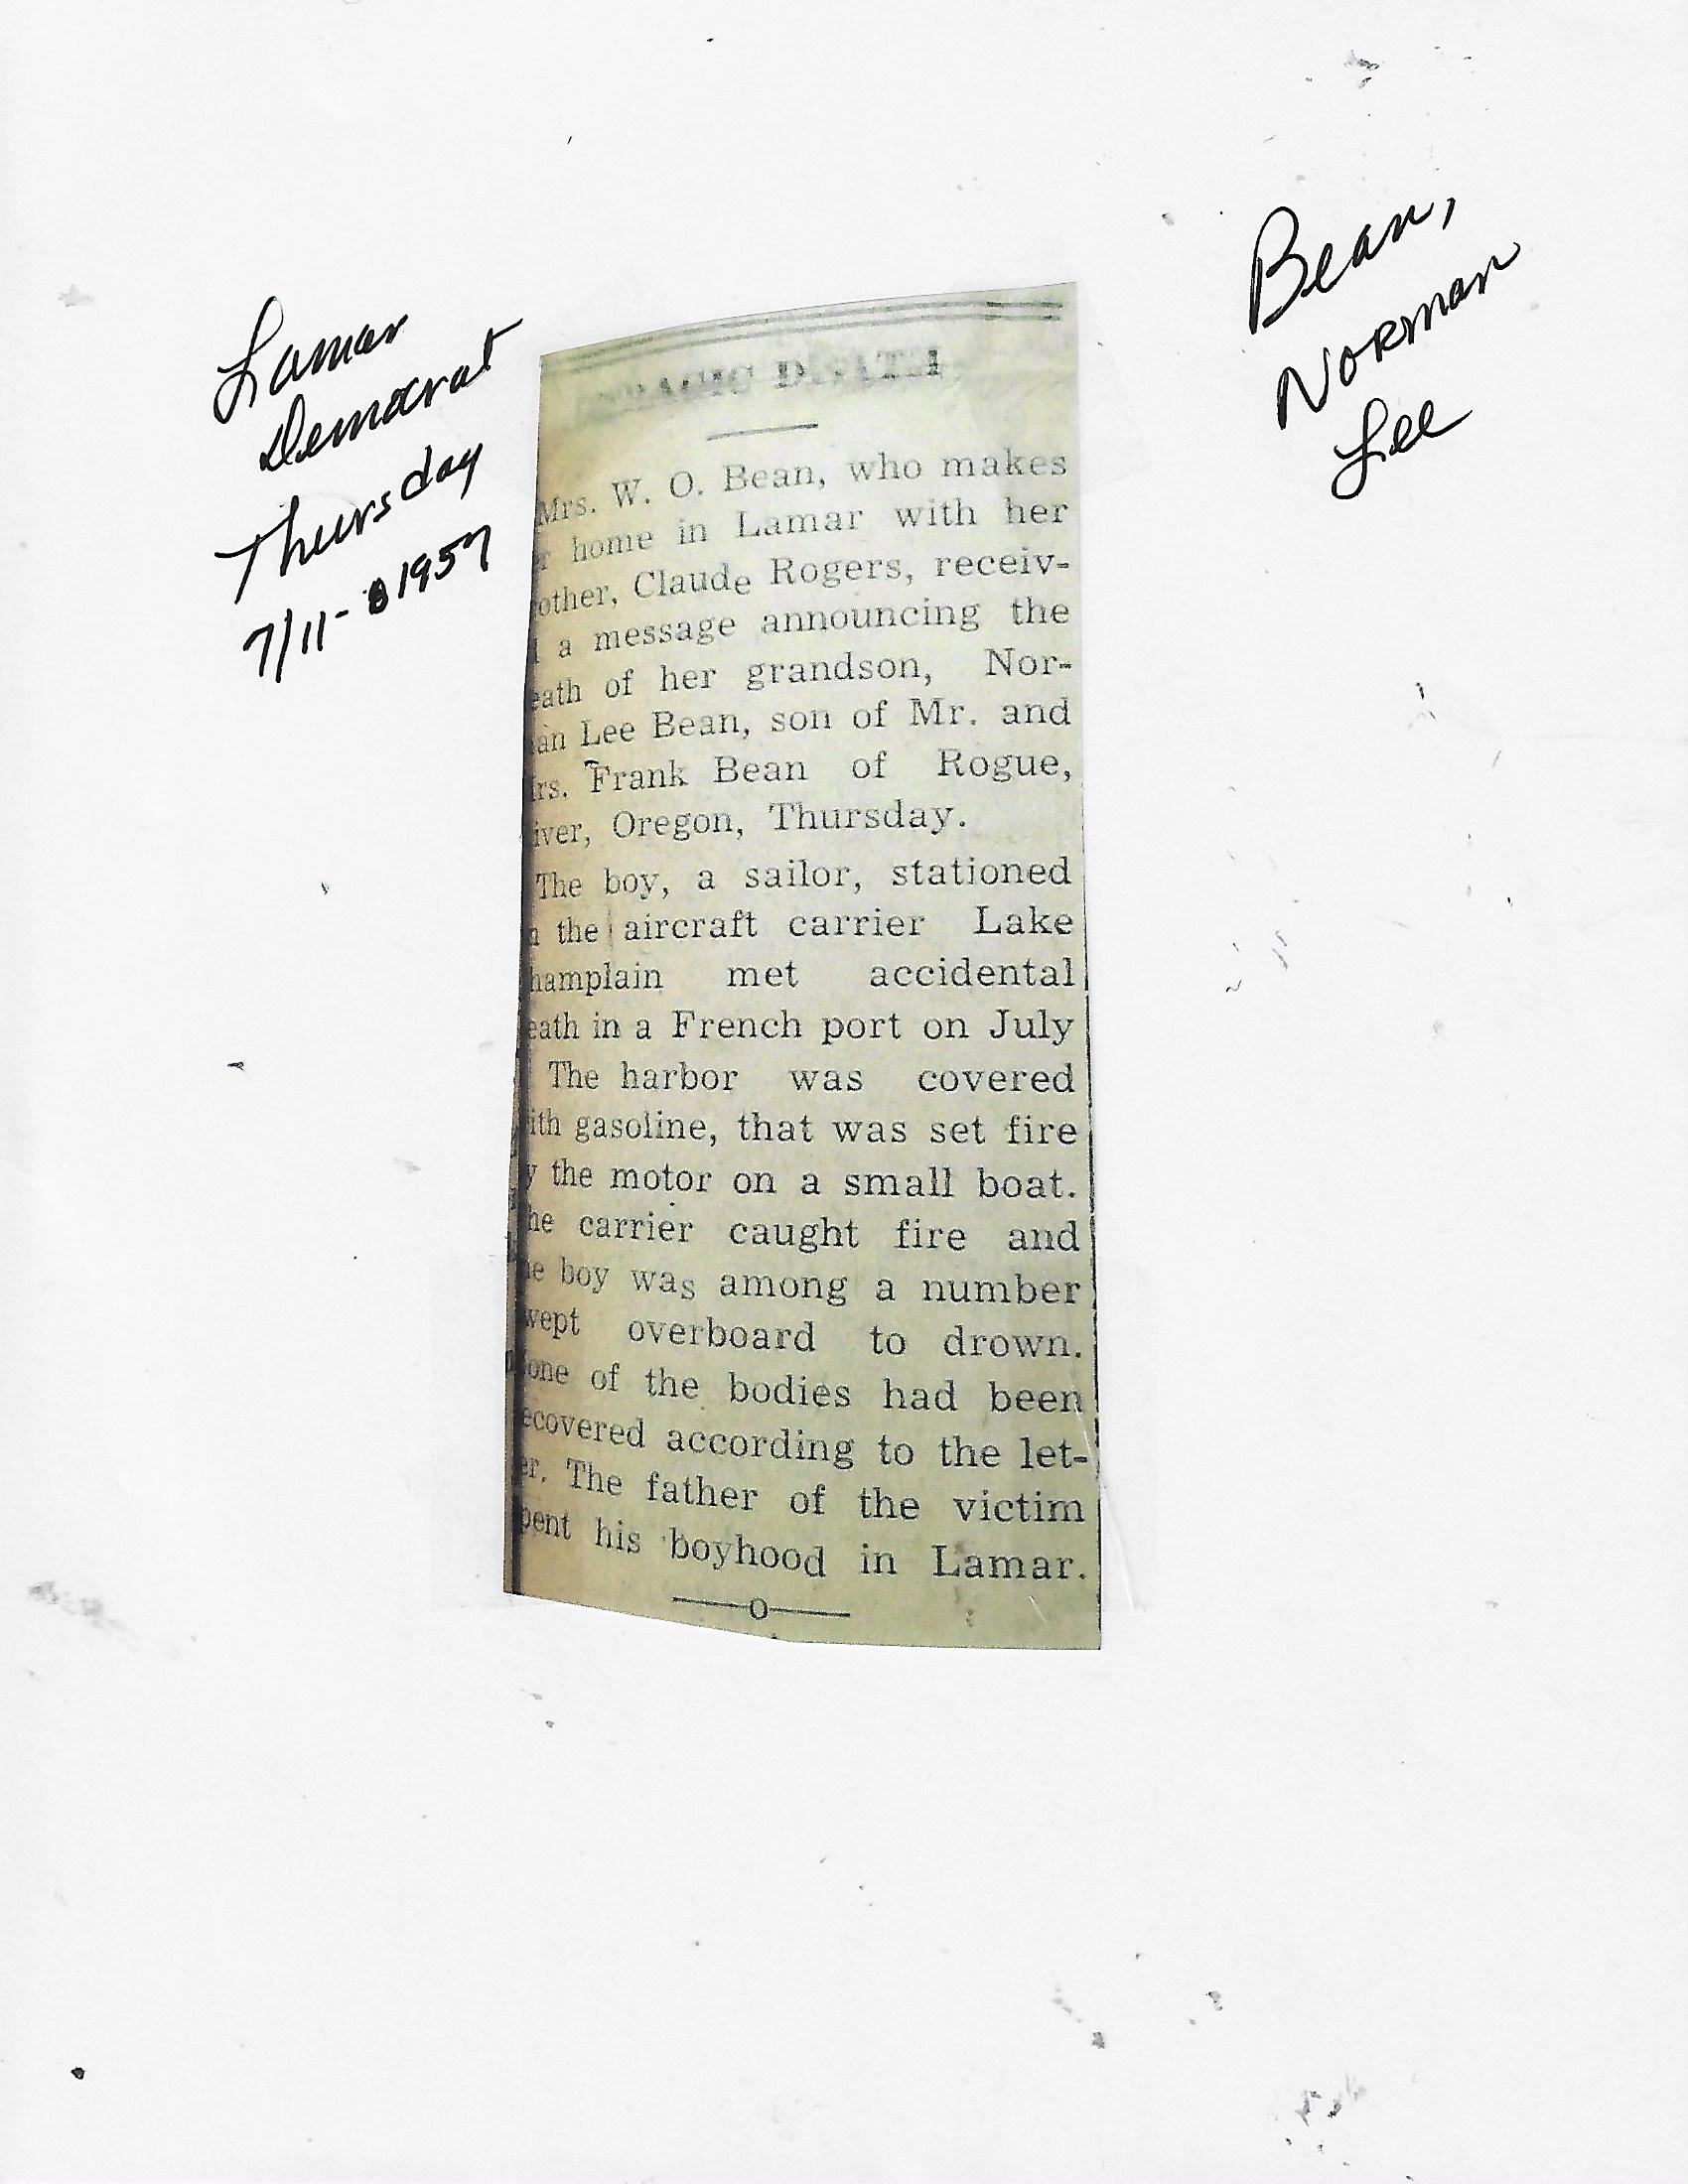 Lamar
Democrat
Thursday
7/11-1957
Bean,
Norman
Lee
TRAGIC DEATH
Mrs. W. O. Bean, who makes
r home in Lamar with her
other, Claude Rogers, receiv-
a message announcing the
eath of her grandson, Nor-
an Lee Bean, son of Mr. and
rs. Frank Bean of Rogue,
iver, Oregon, Thursday.
The boy, a sailor, stationed
n the aircraft carrier Lake
hamplain met accidental
eath in a French port on July
The harbor was covered
ith gasoline, that was set fire
y the motor on a small boat.
he carrier caught fire and
e boy was among a number
wept overboard to drown.
one of the bodies had been
ecovered according to the let-
er. The father of the victim
pent his boyhood in Lamar.
——o——